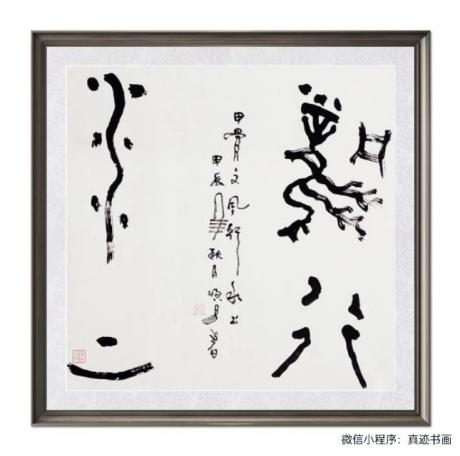 風行
甲骨文風行水上
甲辰年秋月
水上
微信小程序：真迹书画